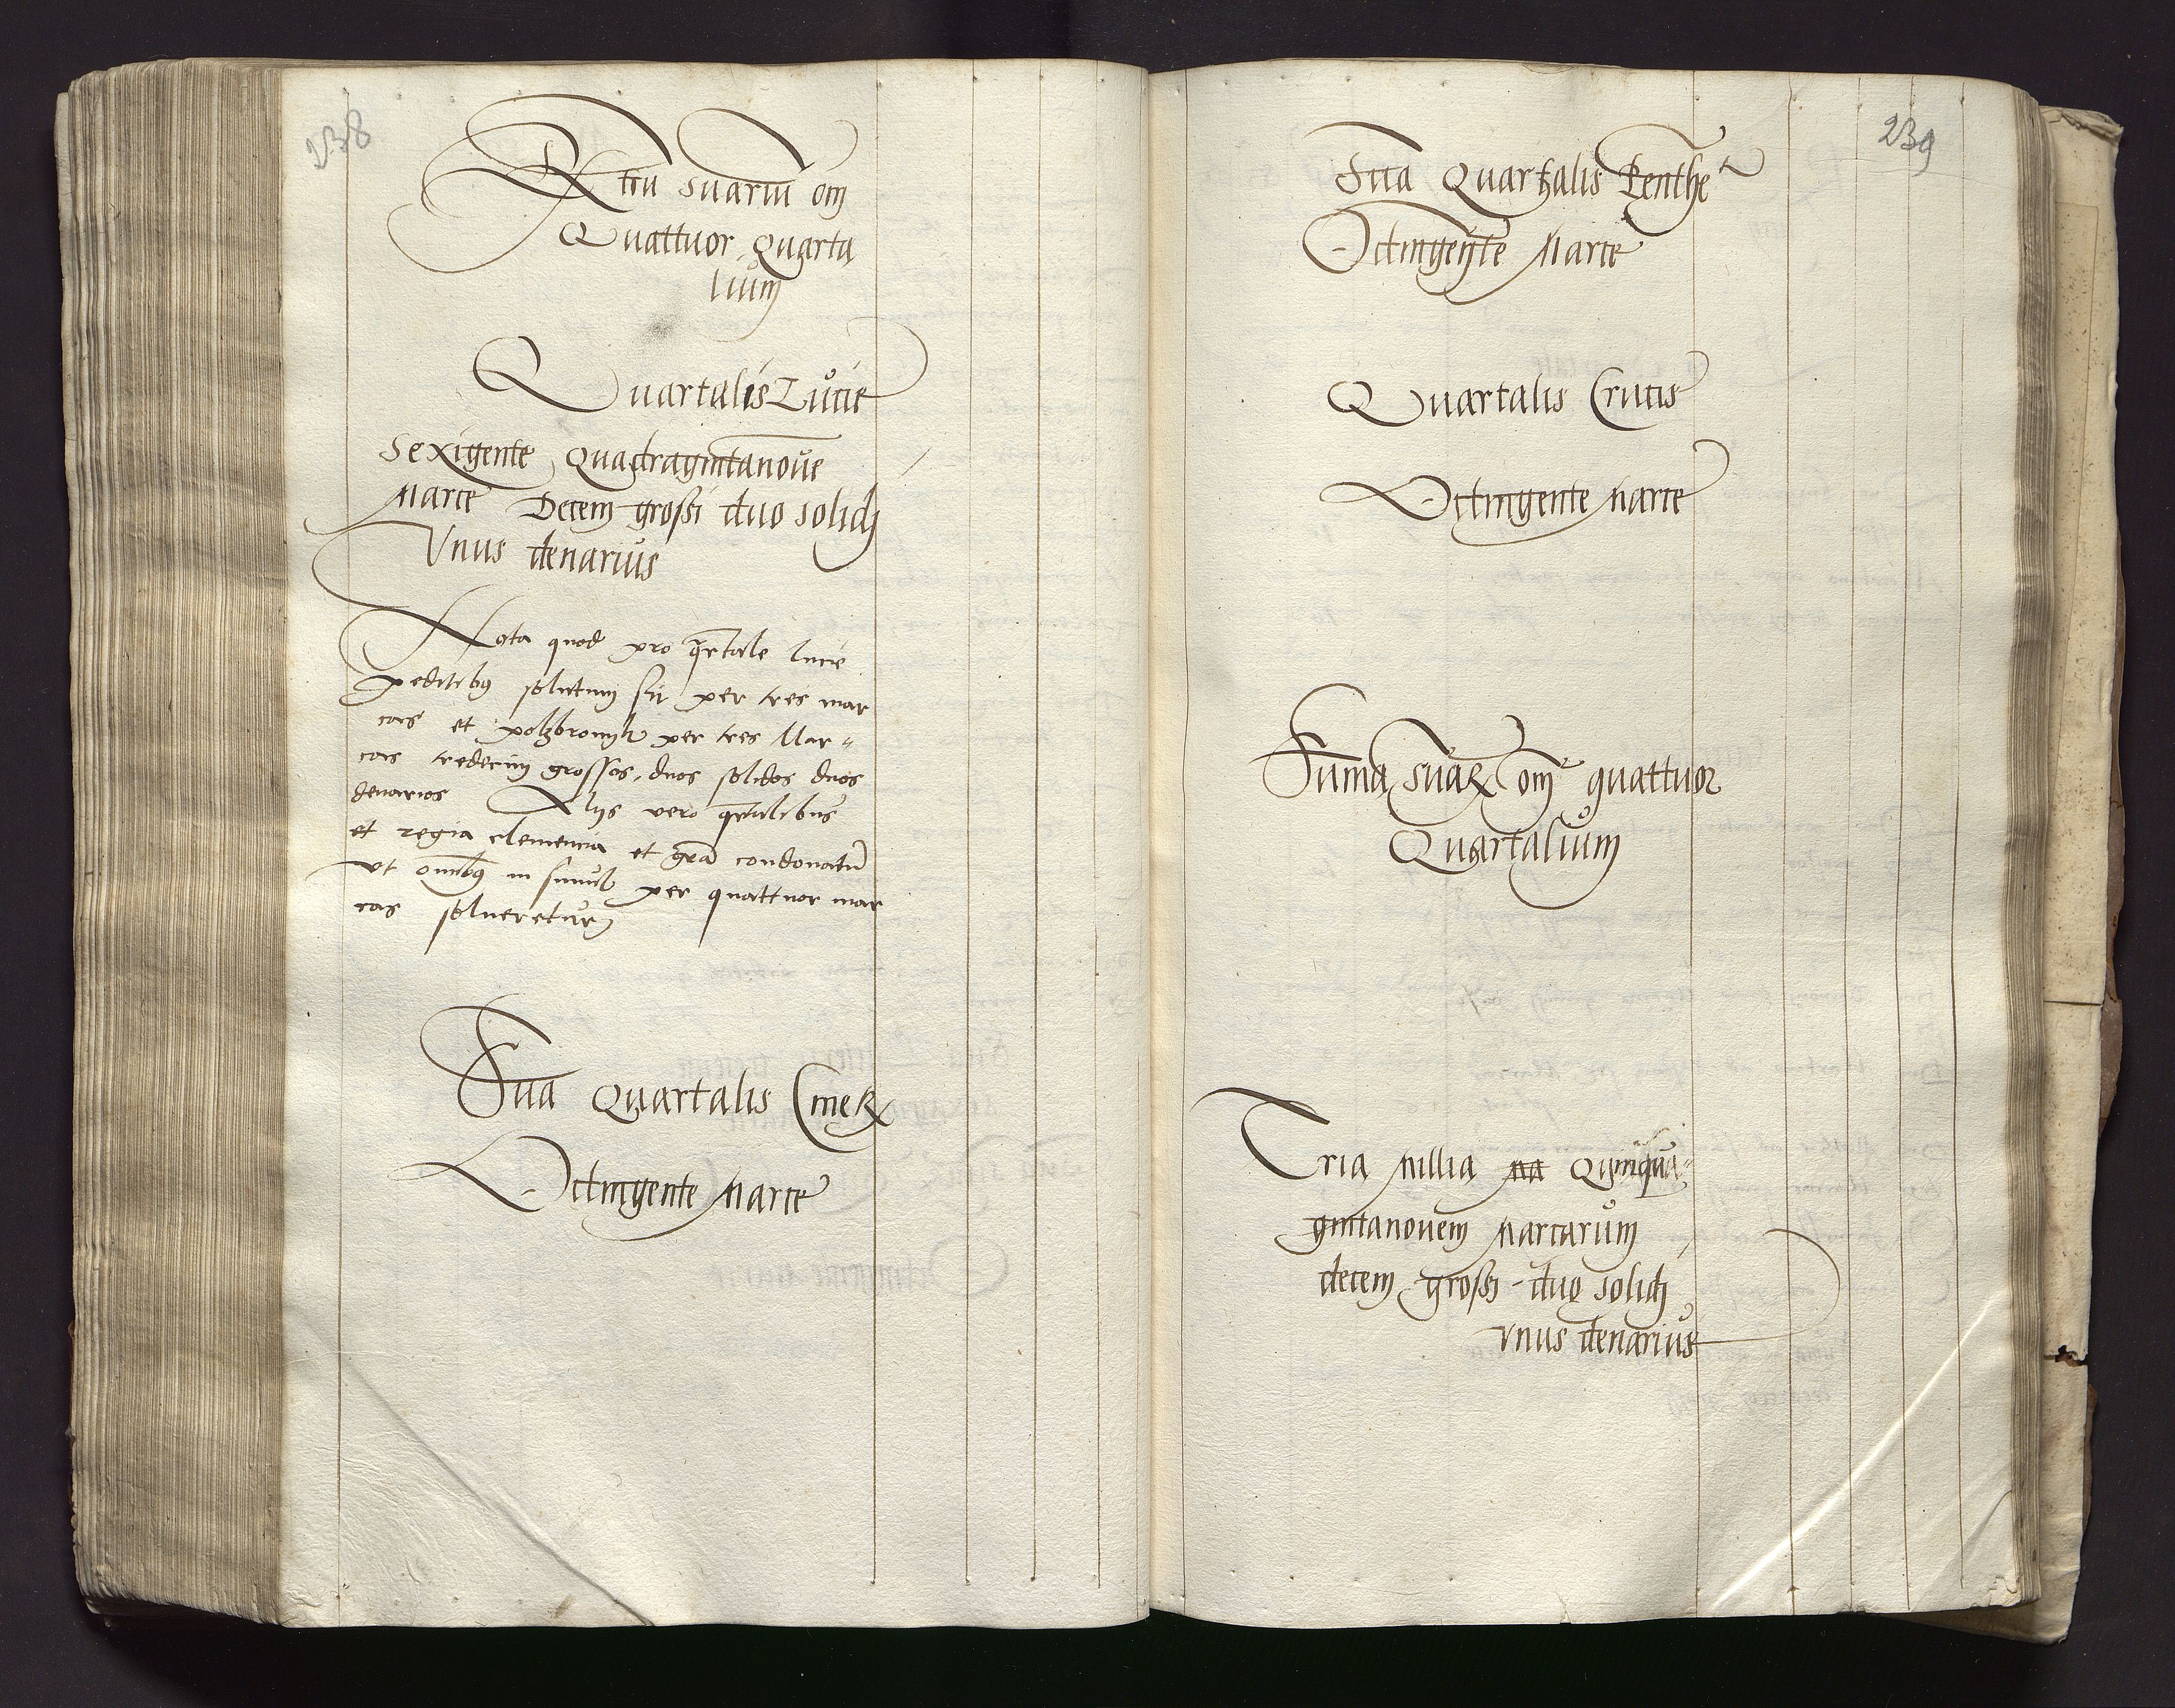 238
Rtru suaru om
Quattuor quarta
lium
Quartalis Lucie
Sexigente Quadragintanoue
Marce Decem grossi duo solidi
Vnus denarius
Nota quod pro qrtale lucie
peditibus solutum sit per tres mar
cas et per tres Mar-
cas tredecim grossos, duos solidos duos
denarios Aliis vero qrtalibus
et regia clemencia et gra condonatu
vt omibus in simul per quattuor mar
cas solueretur
Sua Quartalis Cineru
Octingente Marce
239
Sua Quartalis Penthe
Octingente Marce
Quartalis Crucis
Octingente Marce
Suma suaru om quattuor
Quartalium
Tria Millia Quinqua-
gintanouem Marcarum
decem grossi duo solidi
vnus denarius